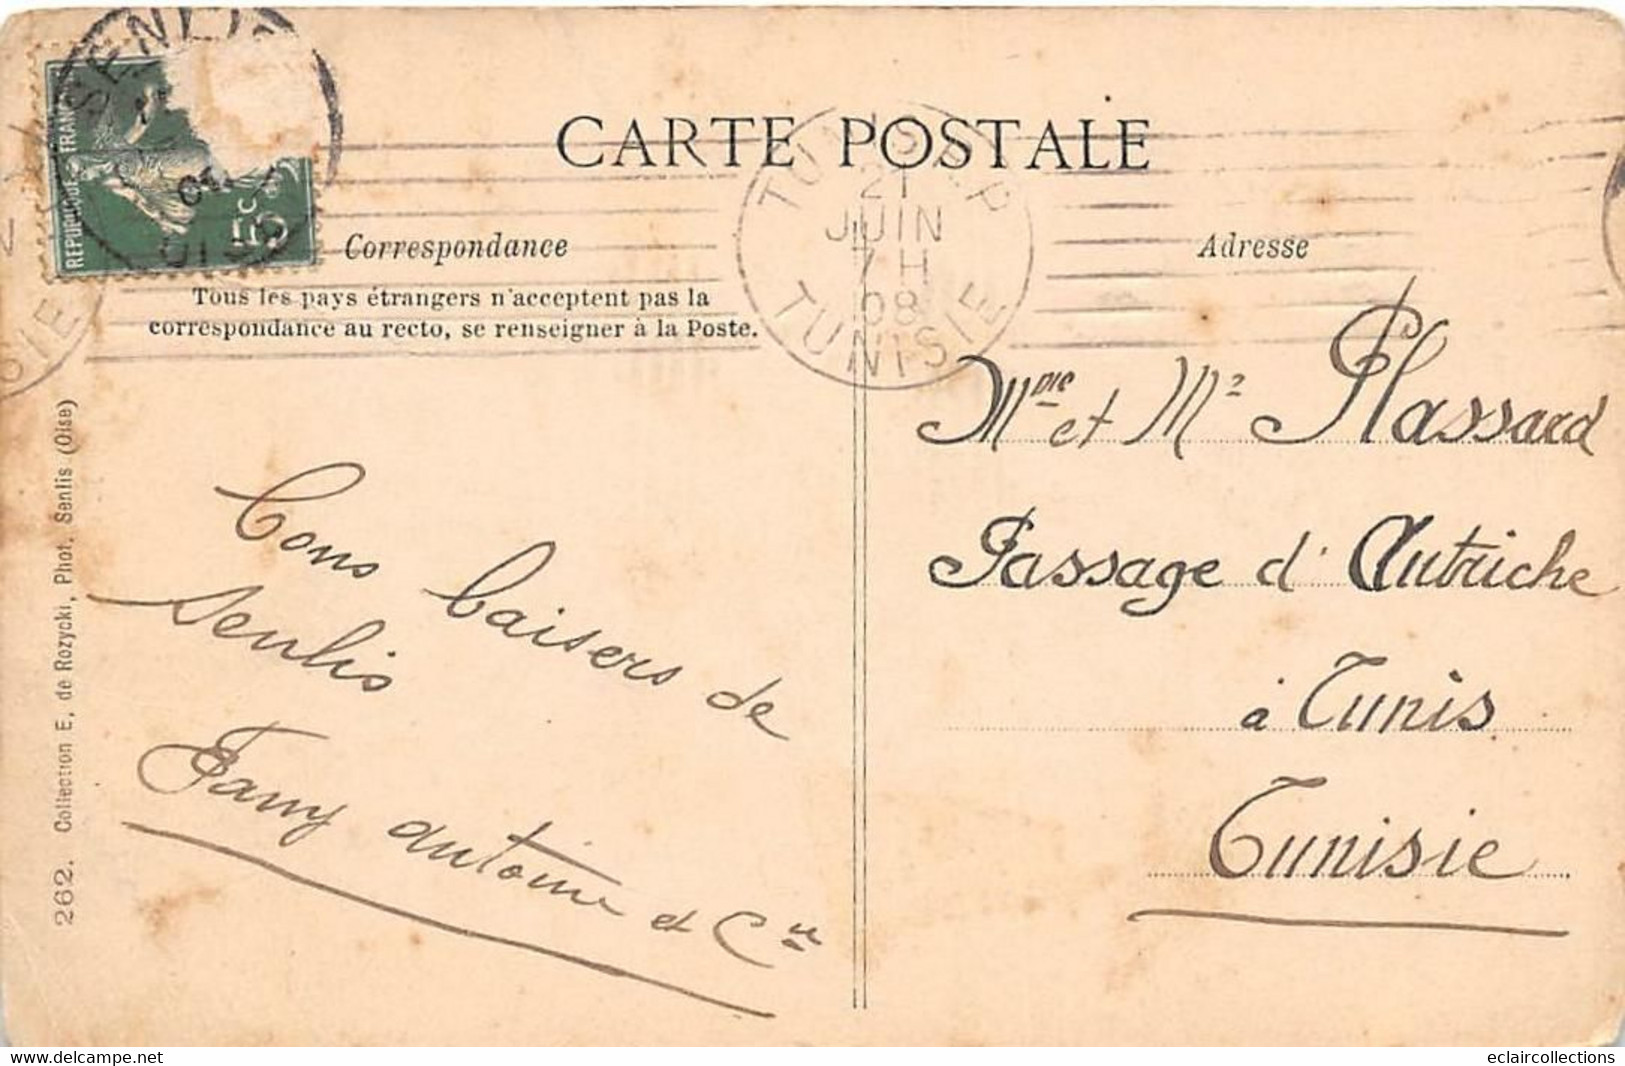 CARTE POSTALE
Correspondance
Adresse
Tous les pays étrangers n'acceptent pas la
correspondance au recto, se renseigner à la Poste.
SENLIS
OISE
REPUBLIQUE FRANC
5c
TUNIS R.P
21
JUIN
7 H
08
TUNISIE
SIE
Mme et Mr Plassard
Passage d'Autriche
à Tunis
Tunisie
Bons baisers de
Senlis
Fany antoine et Cie
262. Collection E. de Rozycki, Phot. Senlis (Oise)
www.delcampe.net
eclaircollections